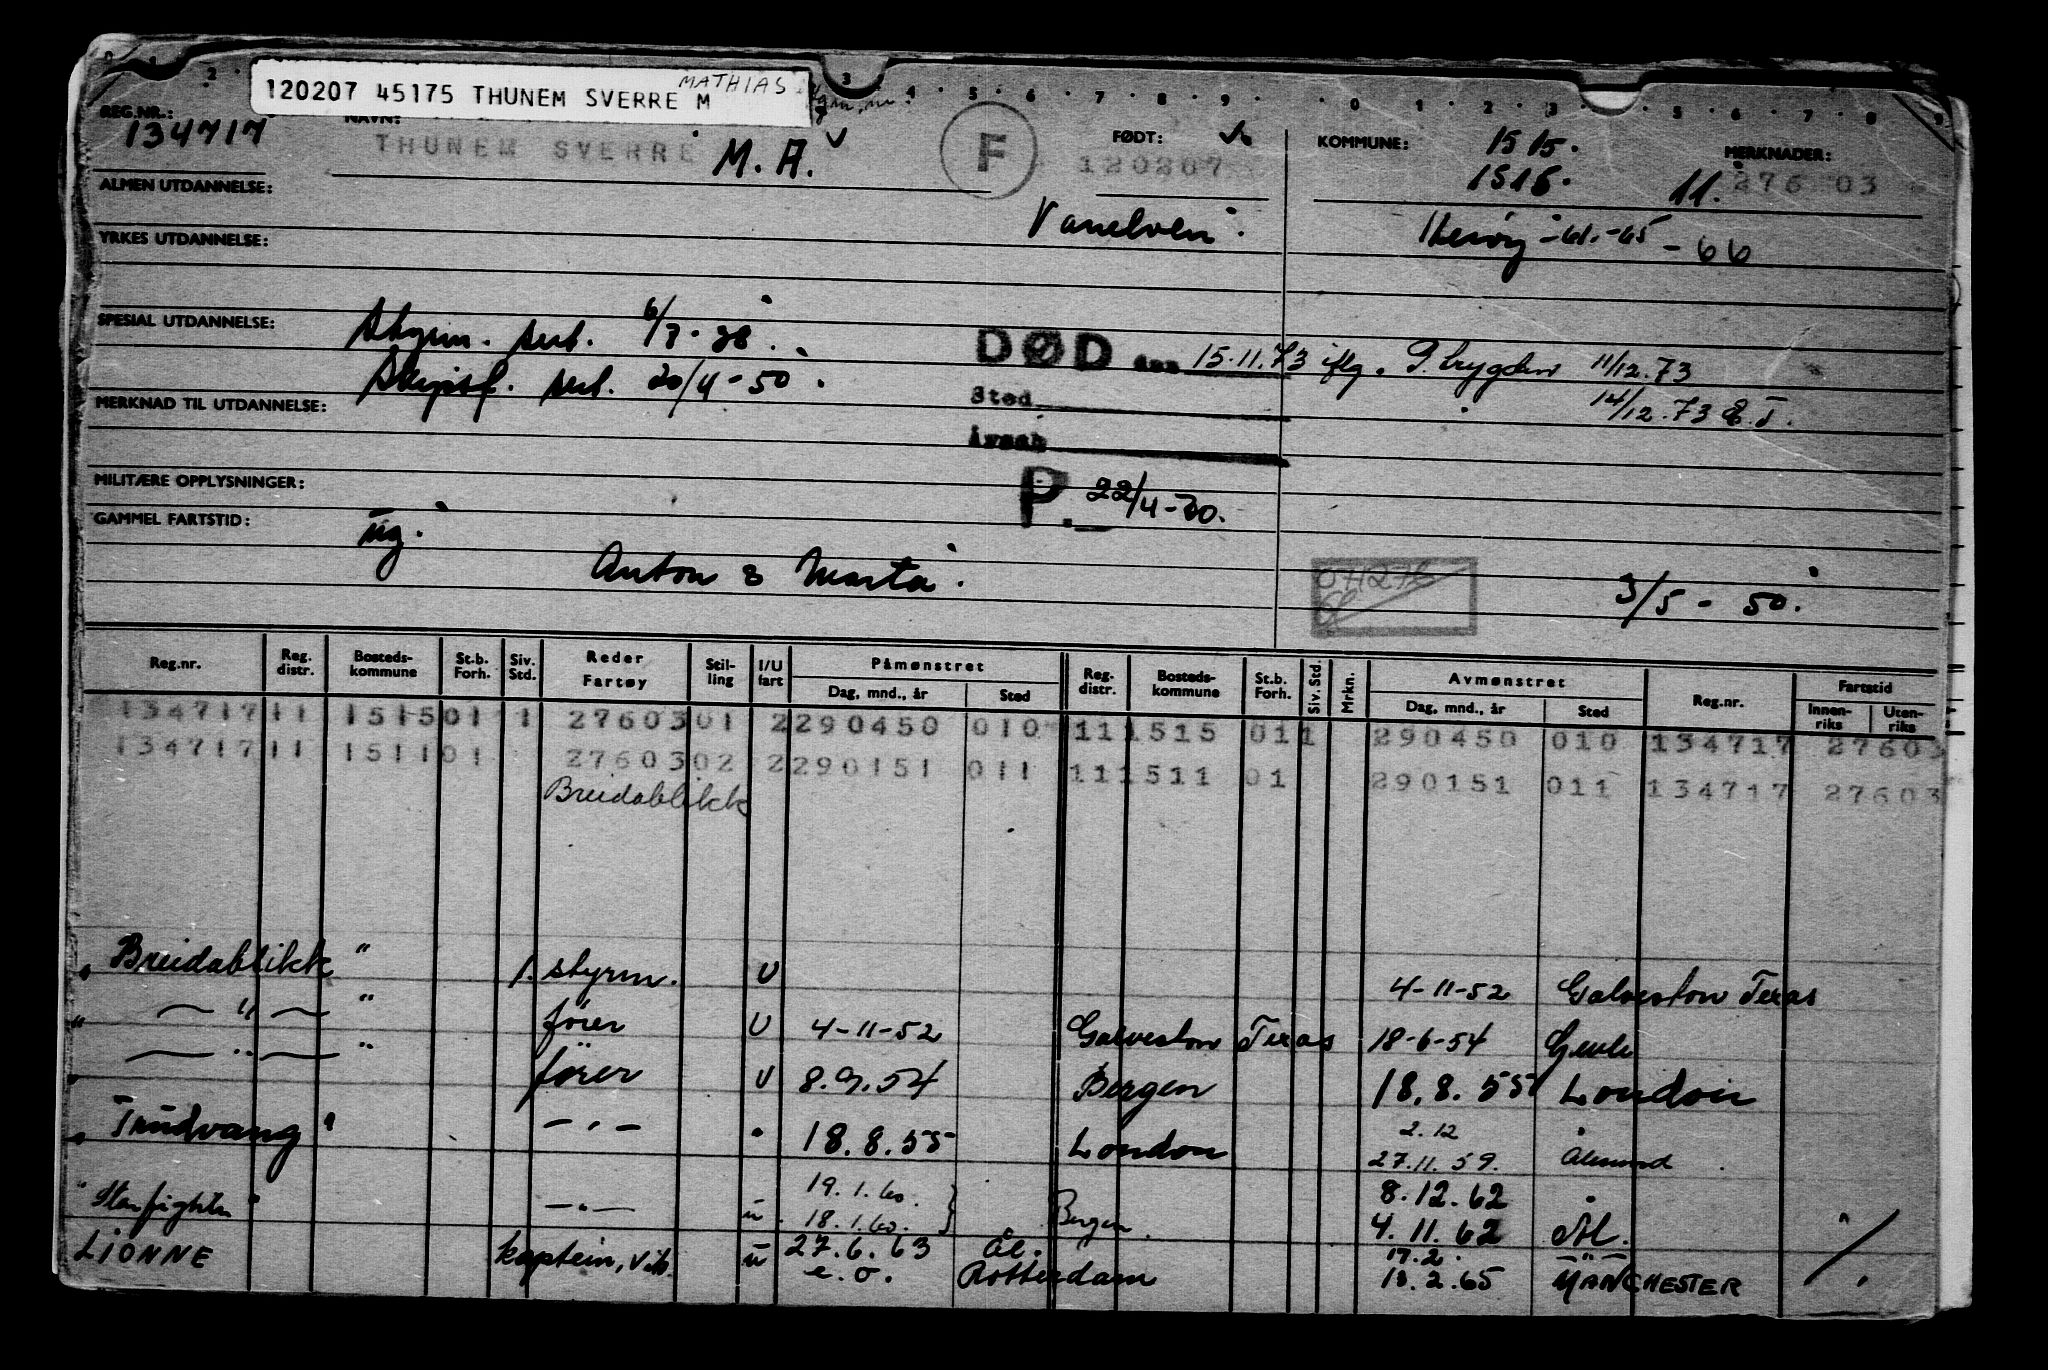 120207 45175 THUNEM SVERRE M MATHIAS
REG.NR.: 134717
NAVN: THUNEM SVERRE M. A.
F
FØDT: 120207
KOMMUNE: 1515.
1516.
MERKNADER:
11. 276 03
ALMEN UTDANNELSE:
Vanelven.
Herøy -61.-65 - 66
YRKES UTDANNELSE:
SPESIAL UTDANNELSE: Styrm. sert. 6/7-38.
Skipsf. sert. 20/4-50.
DØD den 15.11.73 iflg. P. trygden 11/12.73
Sted
14/12.73 E.T.
MERKNAD TIL UTDANNELSE:
Årsak
MILITÆRE OPPLYSNINGER:
P. 22/4-70.
GAMMEL FARTSTID: ug.
Anton & Marta.
071276
3/5 - 50.
Reg.nr. Reg. distr. Bosteds-kommune St.b. Forh. Siv. Std. Reder Fartøy Stil-ling I/U fart Påmønstret Dag, mnd., år Sted Reg. distr. Bosteds-kommune St.b. Forh. Siv. Std. Mrkn. Avmønstret Dag, mnd., år Sted Reg.nr. Fartstid Innen-riks Uten-riks
134717 11 1515 01 1 27603 01 2 290450 010 11 1515 01 1 290450 010 134717 27603
134717 11 1511 01 27603 02 2 290151 011 11 1511 01 290151 011 134717 27603
Breidablikk
"Breidablikk" 1. styrm. U 4-11-52 Galveston Texas
" — " — " fører U 4-11-52 Galveston Texas 18-6-54 Gevle
" — " — " fører U 8.9.54 Bergen 18.8.55 London
"Trudvang" — " — " 18.8.55 London 2.12
27.11.59. Ålesund
"Starfighter" — " — u 19.1.60. 18.1.60. Bergen. 8.12.62 "
4.11.62 Ål.
LIONNE kaptein, v.b. u 27.6.63 Ål. 17.2. — " —
e.o. Rotterdam 18.2.65 MANCHESTER